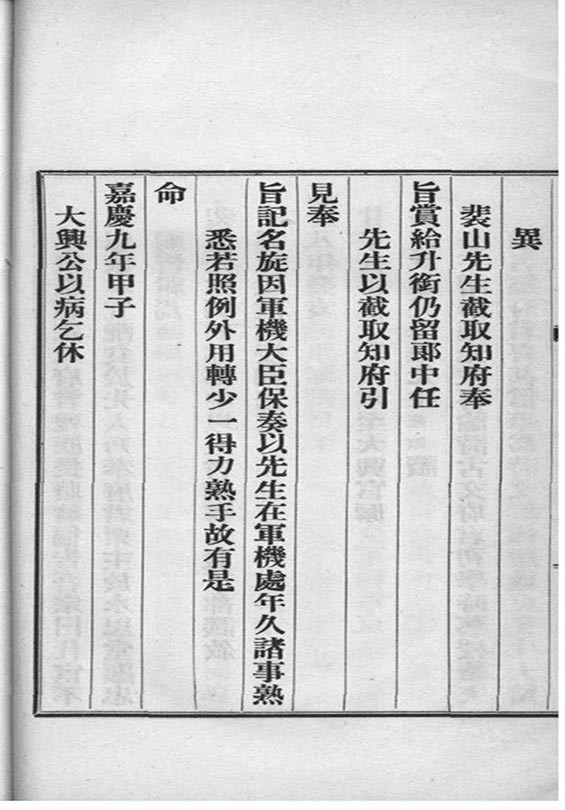 異
裴山先生截取知府奉
旨賞給升銜仍留郎中任
先生以截取知府引
見奉
旨記名旋因軍機大臣保奏以先生在軍機處年久諸事熟
悉若照例外用轉少一得力熟手故有是
命
嘉慶九年甲子
大興公以病乞休